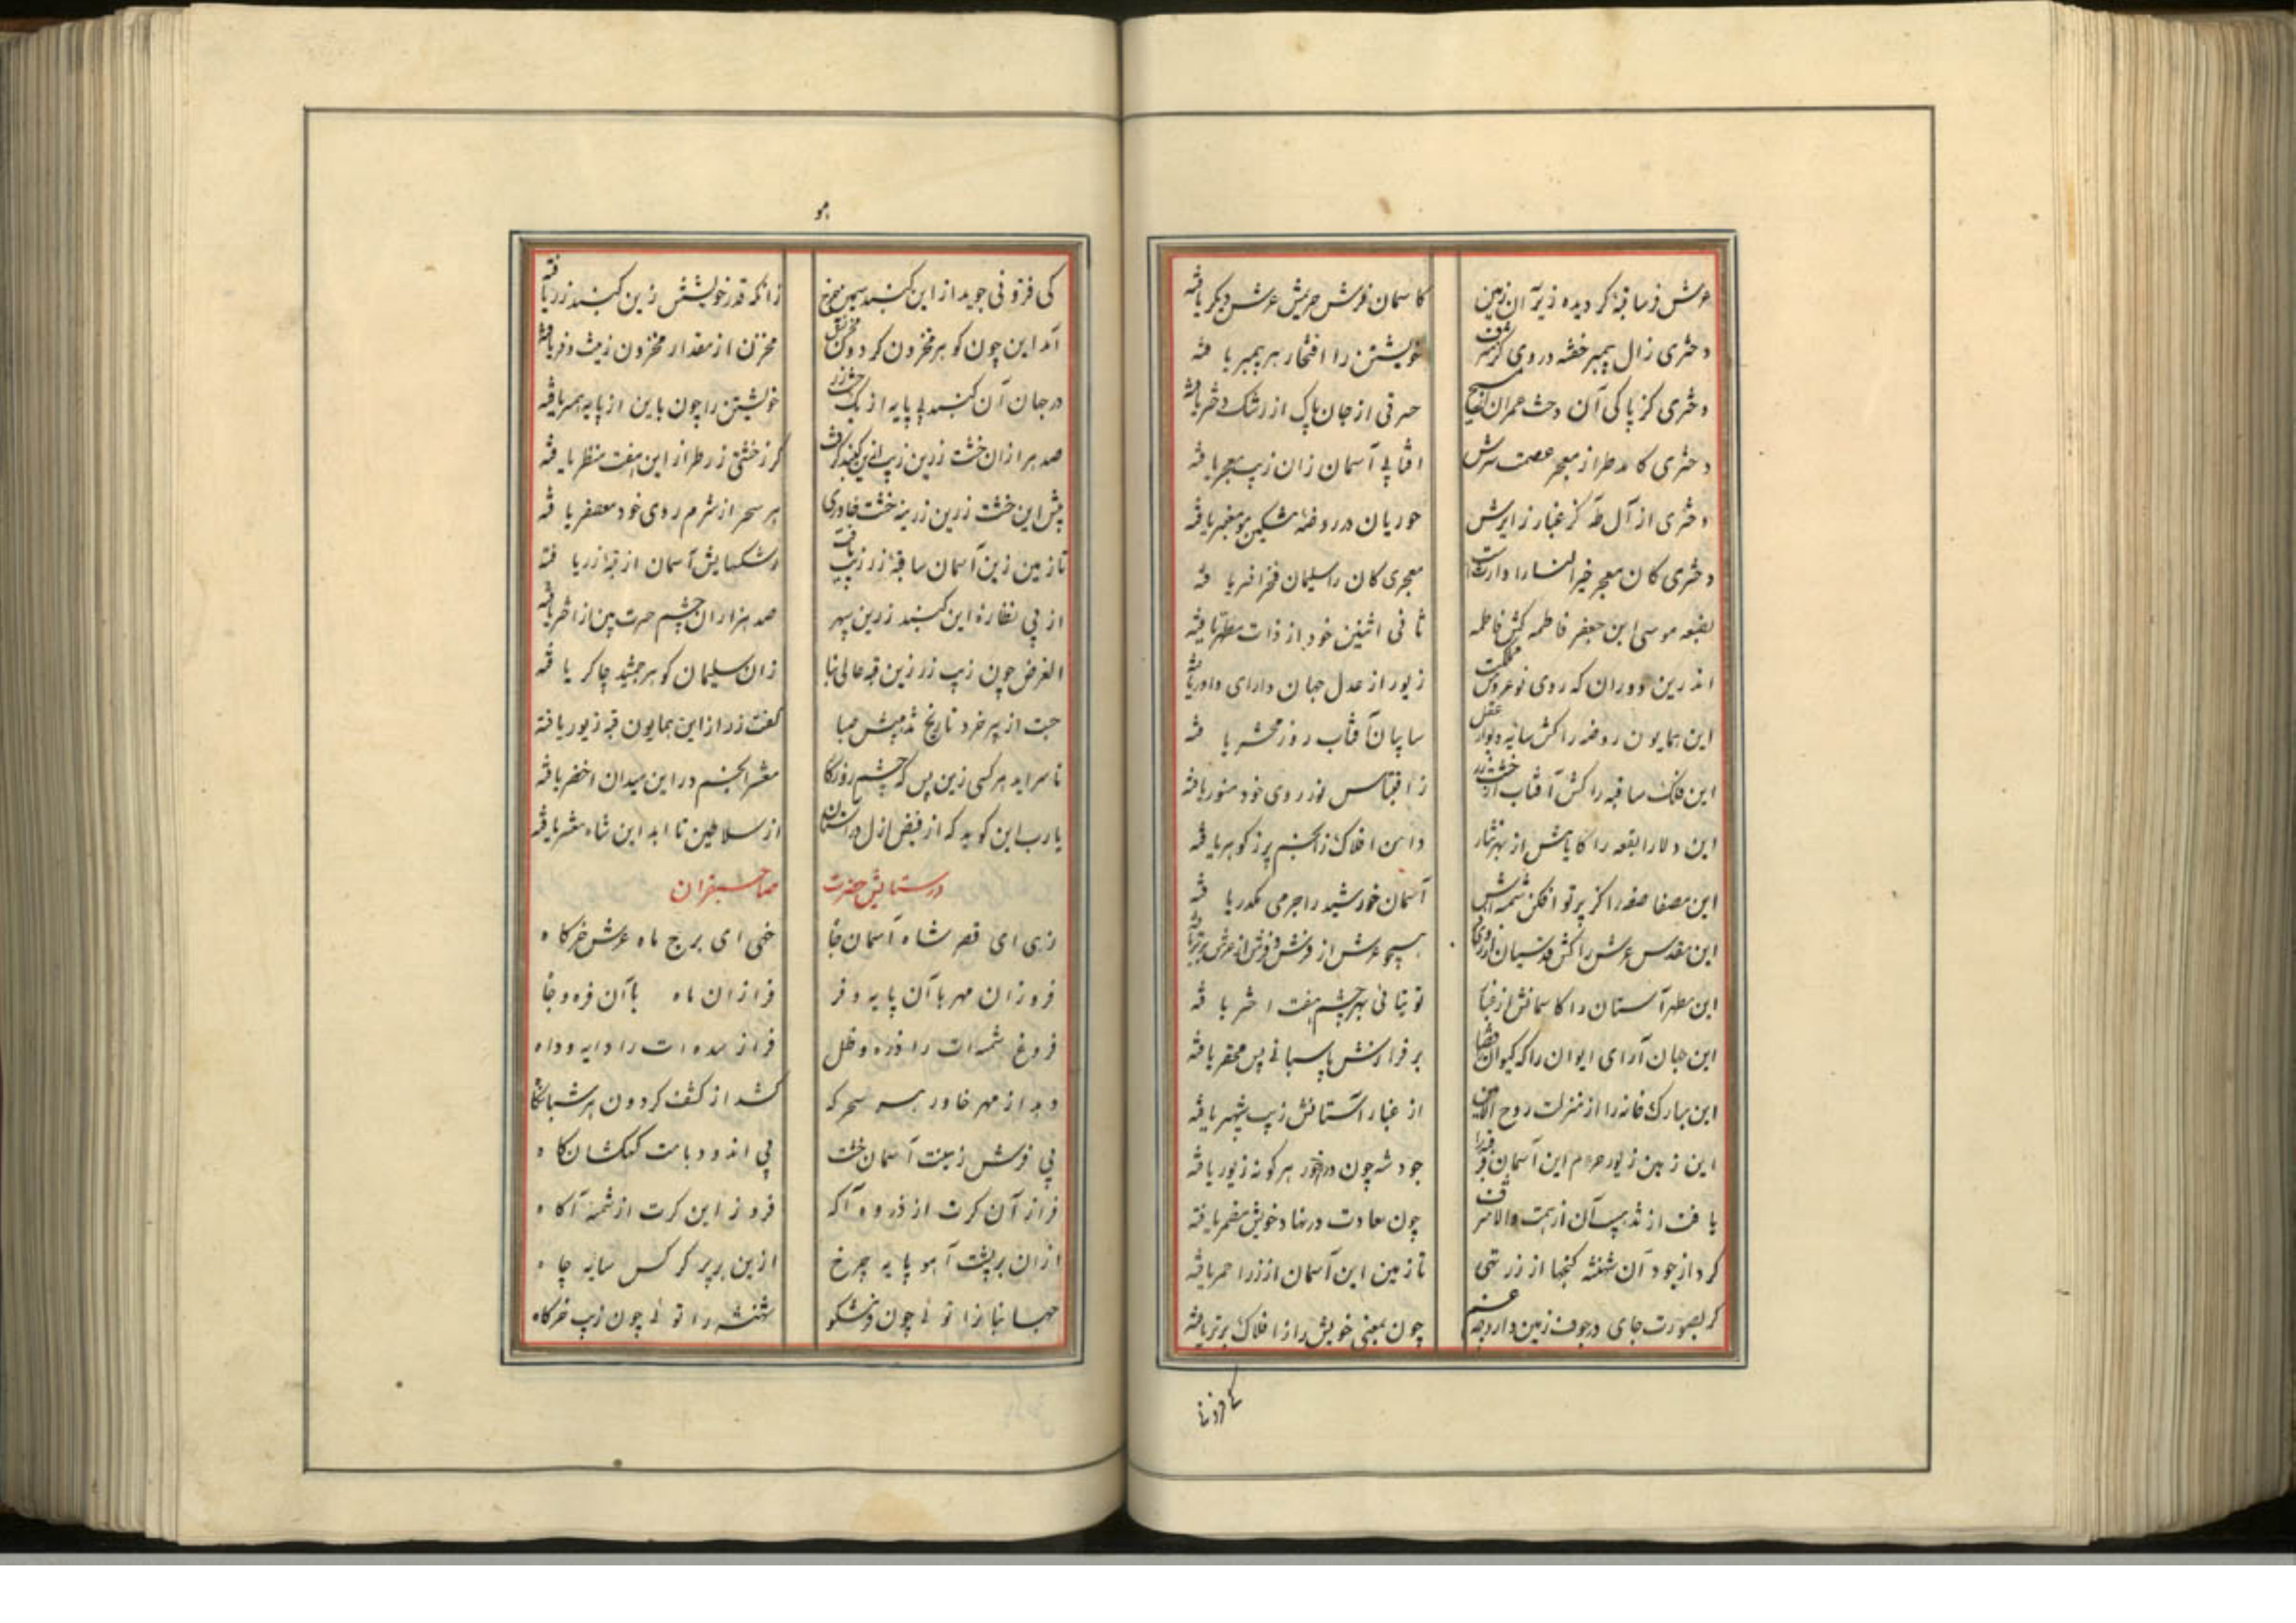 عرش فرسا قبهٔ کردیده زیر آن زمین
کاسمان فرش حریمش عرش دیکر یافته
دختری زال پیمبر خفته در وی کز شرف
خویشتن را افتخار هر پیمبر یافته
دختری کز پاکی آن دخت عمران مسیح
حرقی از جان پاک از رشک دختر یافته
دختری کامد طراز معجر عصمت سرش
افتابی آسمان زان زیب معجر یافته
دختری از آل طه کز غبار زایرش
حوریان در روضه مشکین مو معنبر یافته
دختری کان معجر خیر النسا را وارثست
معجری کان را سلیمان فخر افسر یافته
بضعه موسی ابن جعفر فاطمه کش فاطمه
ثانی اثنین خود از ذات مطهر یافته
اندرین دوران که روی نو عروس مملکت
زیور از عدل جهان دارای داور یافته
این همایون روضه را کش سایه دیوار عقل
سایبان آفتاب روز محشر یافته
این فلک سا قبه را کش آفتاب خشت زر
ز اقتباس نور روی خود منور یافته
این دلارا بقعه را کایامش از بهر نثار
دامن افلاک ز انجم پر ز کوهر یافته
این مصفا صفه را کز پرتو افکن شمسه اش
آسمان خورشید را جرمی مکدر یافته
این مقدس عرش را کش قدسیان از روی
همچو عرش از فرش و فرش از عرش برتر یافته
این مطهر آستان را کاسمانش از غبار
توتیائی بهر چشم هفت اختر یافته
این جهان آرای ایوان را که کیوان قضا
بر فرازش پاسبانی بس محقر یافته
این مبارک خانه را از منزلت روح الامین
از غبار آستانش زیب شهپر یافته
این زمین زیور حرم این آسمان فر قبه را
جود شه چون در خور هر کونه زیور یافته
یافت از تذهیب آن از همت والا شرف
چون سعادت در نهاد خویش مضمر یافته
کرد از جود آن شهنشه کنجها از زر تهی
تا زمین این آسمان از زر احمر یافته
کر بصورت جای در جوف زمین دارد چه غم
چون بمعنی خویش را ز افلاک برتر یافته
کی فزونی جوید از این کنبد سیمین چرخ
زانکه قدر خویشتن زین کنبد زر یافته
آمد این چون کوهر مخزون کردون مخزنش
مخزن از مقدار مخزون زینت و فر یافته
در جهان آن کنبد بی پایه از یک خشت زر
خویشتن را چون باین از پایه همسر یافته
صد هزاران خشت زرین زیب این کنبد کرفت
کر ز خشتی زر طراز این هفت منظر یافته
پیش این خشت زرین زرینه خشت خاوری
هر سحر از شرم روی خود معصفر یافته
تا زمین زین آسمان سا قبهٔ زر زیب یافت
رشکهایش آسمان از قبهٔ زر یافته
از پی نظارهٔ این کنبد زرین سپهر
صد هزاران چشم حیرت بین از اختر یافته
الغرض چون زیب زر زین قبه عالی بنا
زان سلیمان کو هر جمشید چاکر یافته
جست از پیر خرد تاریخ تذهیبش صبا
کفت زر از این همایون قبه زیور یافته
تا سراید هر کسی زین پس که چشم روزکار
معشر انجم در این میدان اخضر یافته
یارب این کوید که از فیض ازل در آستان
از سلاطین تا ابد این شاه معشر یافته
در ستایش حضرت
صاحبقران
زهی ای قصر شاه آسمان جا
خهی ای برج ماه عرش خرکاه
فروزان مهر با آن پایه و فر
فرازان ماه با آن فره و جا
فروغ شمسه ات را ذره و ظل
فراز سده ات را دایه و داه
دید از مهر خاور هر سحر که
کشد از کتف کردون هر شبانکا
پی فرش زمینت آسمان خشت
پی اندود بامت کهکشان کاه
فراز آن کرت از ذروه آکه
فروز این کرت از شمسه آکاه
از آن بر پشت آهو پایه چرخ
ازین بر پر کرکس سایه چاه
جهانبانرا توئی چون مشکو
شهنشه را توئی چون زیب خرکاه
کی فزونی